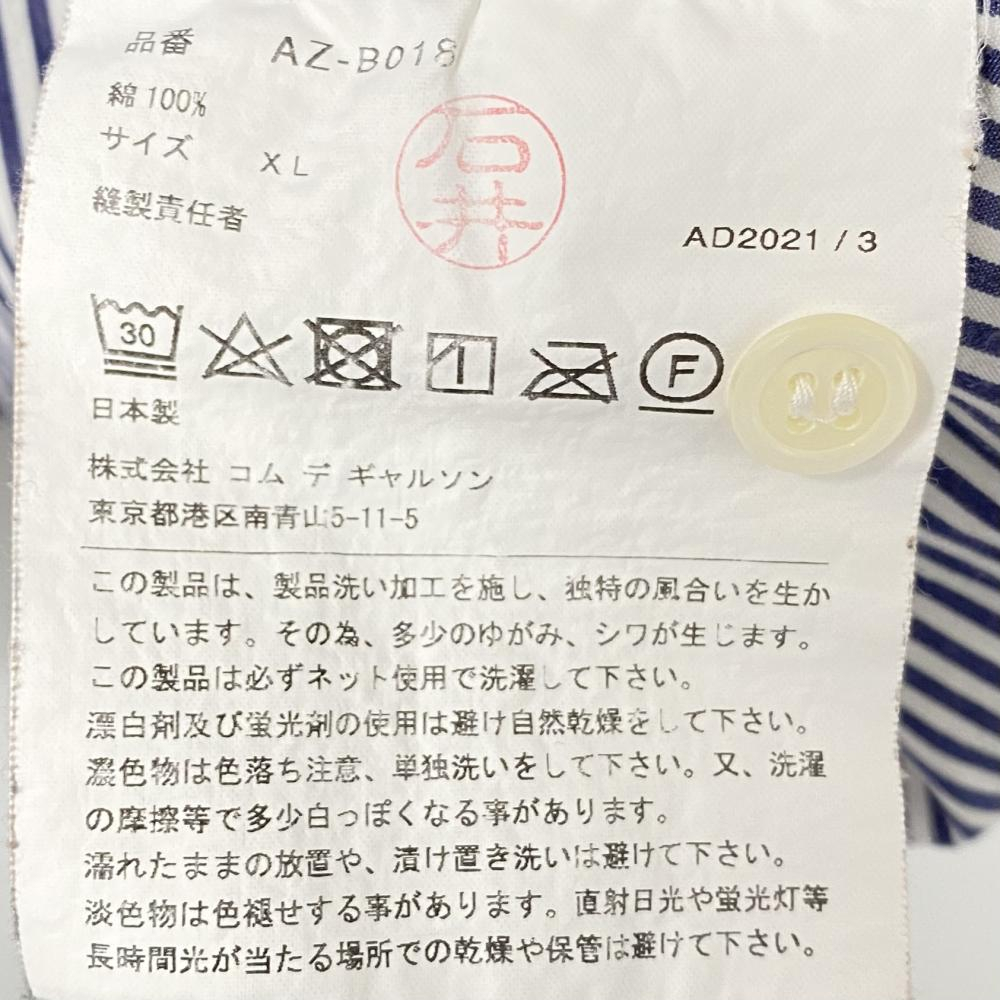 品番 AZ-B018
綿 100%
サイズ XL
縫製責任者
石井
AD2021 / 3
30
F
日本製
株式会社 コム デ ギャルソン
東京都港区南青山5-11-5
この製品は、製品洗い加工を施し、独特の風合いを生か
しています。その為、多少のゆがみ、シワが生じます。
この製品は必ずネット使用で洗濯して下さい。
漂白剤及び蛍光剤の使用は避け自然乾燥をして下さい。
濃色物は色落ち注意、単独洗いをして下さい。又、洗濯
の摩擦等で多少白っぽくなる事があります。
濡れたままの放置や、漬け置き洗いは避けて下さい。
淡色物は色褪せする事があります。直射日光や蛍光灯等
長時間光が当たる場所での乾燥や保管は避けて下さい。